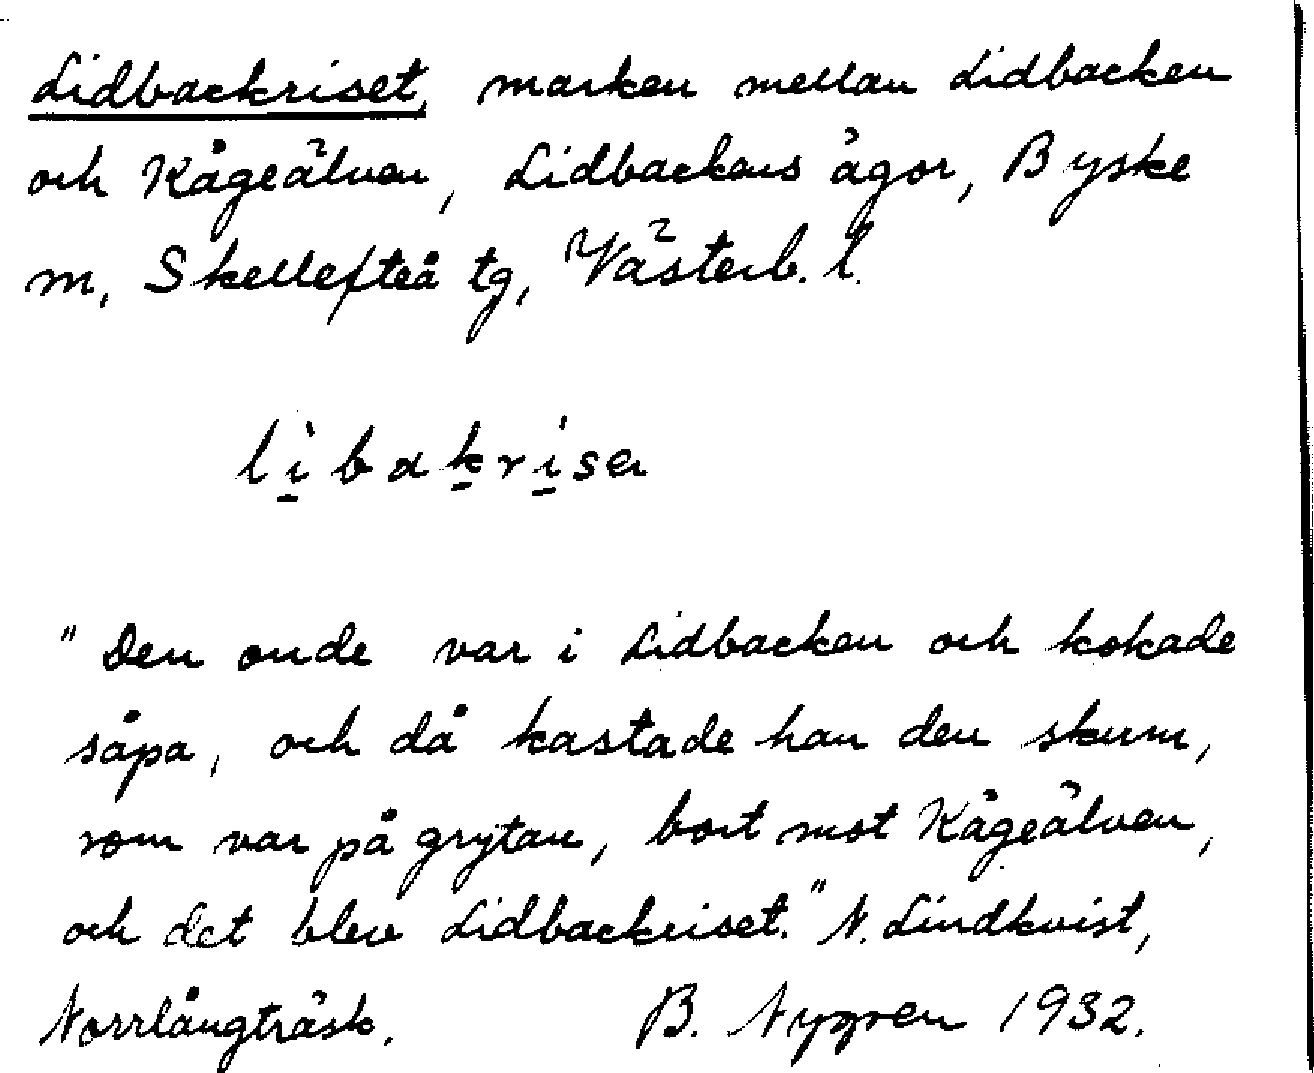 Lidbackriset, marken mellan Lidbacken
och Kågeälven, Lidbackens ägor, Byske
m, Skellefteå tg, Västerb. l.
lìbakrisen
"Den onde var i Lidbacken och kokade
såpa, och då kastade han den skum,
som var på grytan, bort mot Kågeälven,
och det blev Lidbackriset." N. Lindkvist,
Norrlångträsk. B. Nygren 1932.